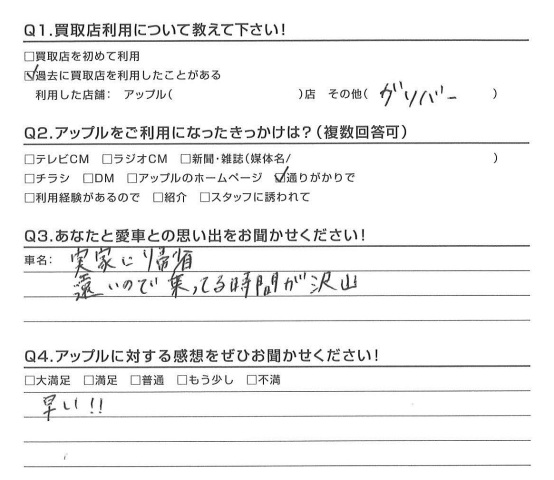 Q1.買取店利用について教えて下さい!
□買取店を初めて利用
☑過去に買取店を利用したことがある
利用した店舗: アップル( )店 その他( ガリバー )
Q2.アップルをご利用になったきっかけは?(複数回答可)
□テレビCM □ラジオCM □新聞・雑誌(媒体名/ )
□チラシ □DM □アップルのホームページ ☑通りがかりで
□利用経験があるので □紹介 □スタッフに誘われて
Q3.あなたと愛車との思い出をお聞かせください!
車名: 実家に帰省
遠いので乗ってる時間が沢山
Q4.アップルに対する感想をぜひお聞かせください!
□大満足 □満足 □普通 □もう少し □不満
早い!!